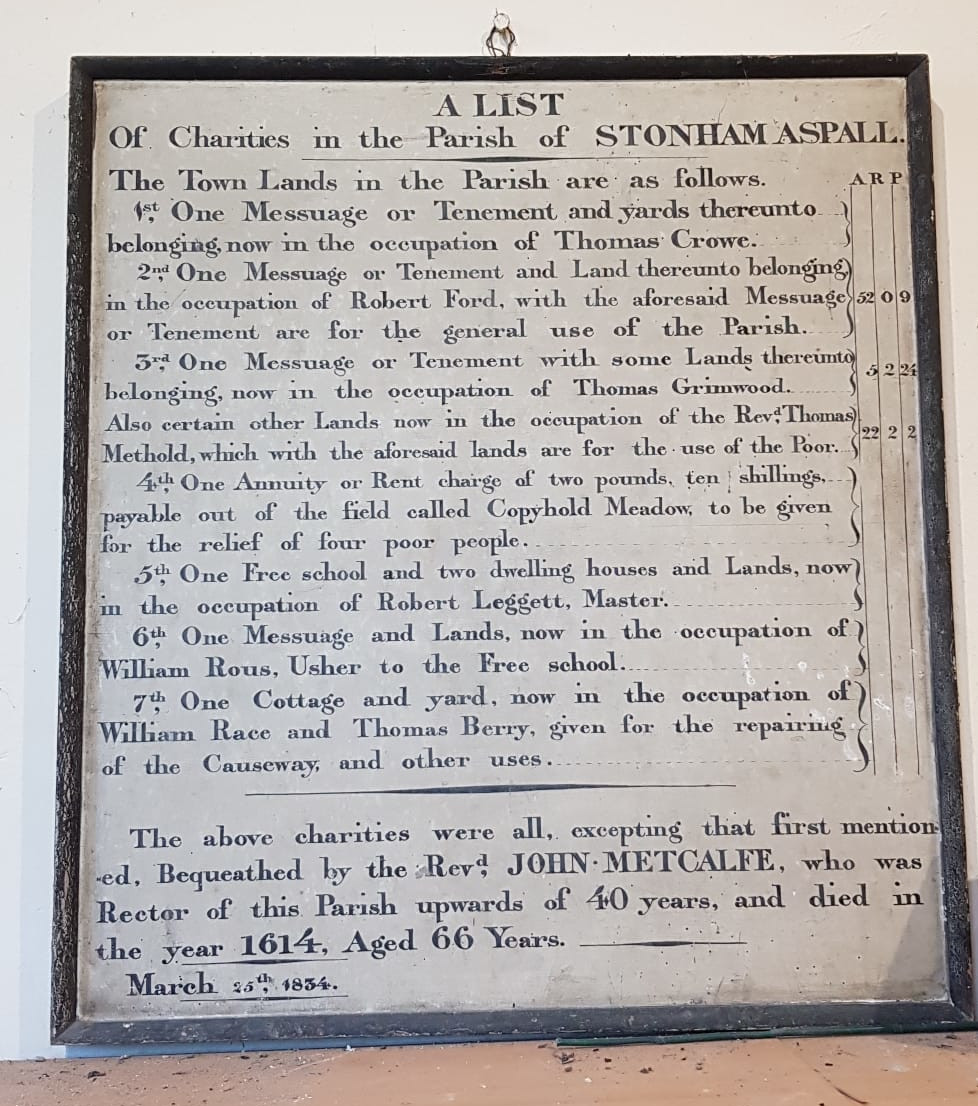 A LIST
Of Charities in the Parish of STONHAM ASPALL.
The Town Lands in the Parish are as follows. A R P
1st, One Messuage or Tenement and yards thereunto
belonging, now in the occupation of Thomas Crowe.
2nd, One Messuage or Tenement and Land thereunto belonging,
in the occupation of Robert Ford, with the aforesaid Messuage 52 0 9
or Tenement are for the general use of the Parish.
3rd, One Messuage or Tenement with some Lands thereunto
belonging, now in the occupation of Thomas Grimwood. 5 2 24
Also certain other Lands now in the occupation of the Revd, Thomas
Methold, which with the aforesaid lands are for the use of the Poor. 22 2 2
4th, One Annuity or Rent charge of two pounds, ten shillings,
payable out of the field called Copyhold Meadow, to be given
for the relief of four poor people.
5th, One Free school and two dwelling houses and Lands, now
in the occupation of Robert Leggett, Master.
6th, One Messuage and Lands, now in the occupation of
William Rous, Usher to the Free school.
7th, One Cottage and yard, now in the occupation of
William Race and Thomas Berry, given for the repairing
of the Causeway, and other uses.
The above charities were all, excepting that first mention-
-ed, Bequeathed by the Revd, JOHN METCALFE, who was
Rector of this Parish upwards of 40 years, and died in
the year 1614, Aged 66 Years.
March 25th, 1834.